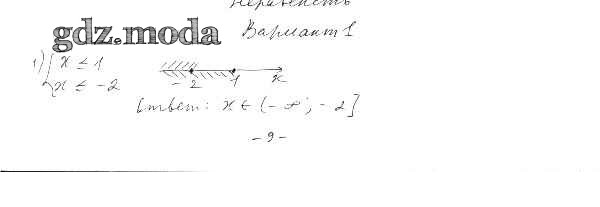 неравенств
gdz.moda Вариант 1
1) { x ≤ 1
x ≤ -2
-2 1 x
Ответ: x ∈ (-∞; -2]
- 9 -